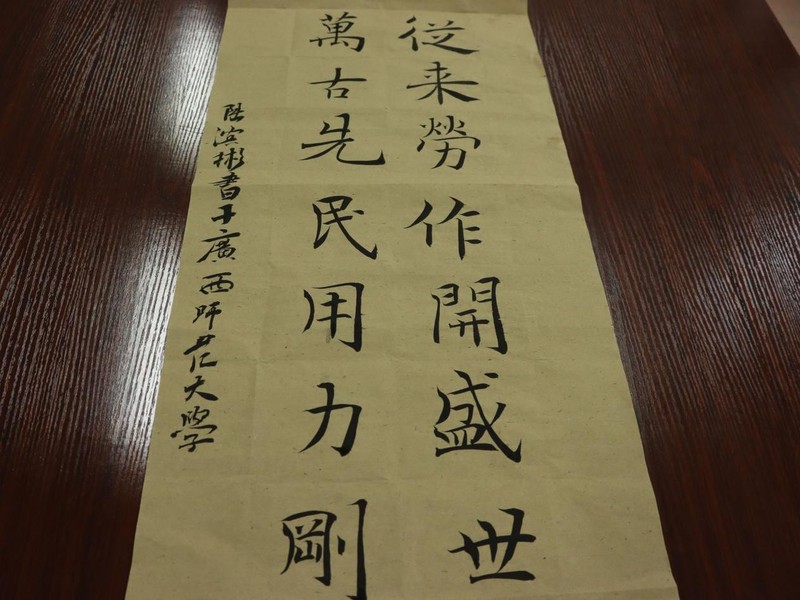 從来勞作開盛世
萬古先民用力剛
陸滨彬書于廣西师范大學